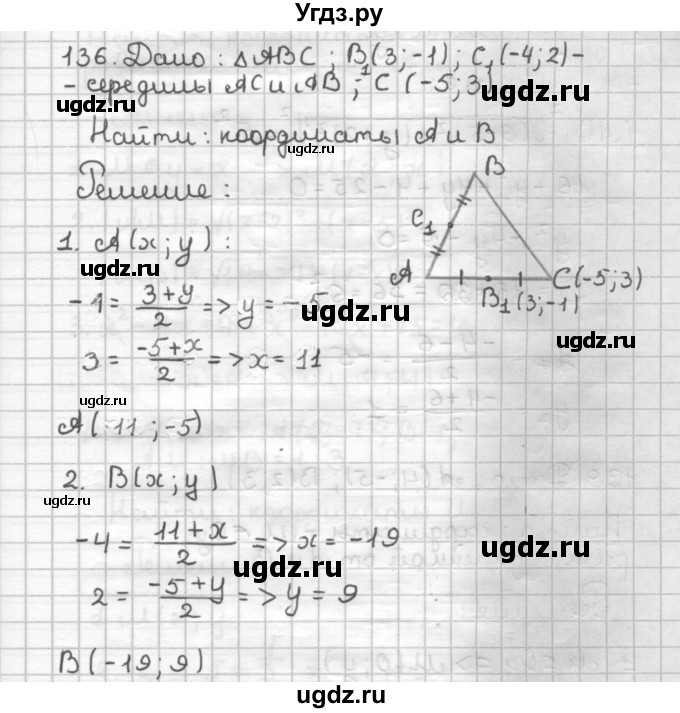 Угдз.ру
136. Дано: △ABC; B₁(3;-1); C₁(-4;2)-
- середины AC и AB; C(-5;3)
ugdz.ru ugdz.ru ugdz.ru
Найти: координаты A и B
ugdz.ru ugdz.ru
Решение:
ugdz.ru
B
C₁
A
C(-5;3)
B₁(3;-1)
1. A(x;y):
-1 = (3+y)/2 => y = -5
ugdz.ru
3 = (-5+x)/2 => x = 11
ugdz.ru
ugdz.ru
A(11;-5)
2. B(x;y)
ugdz.ru
-4 = (11+x)/2 => x = -19
ugdz.ru ugdz.ru
2 = (-5+y)/2 => y = 9
B(-19;9)
ugdz.ru ugdz.ru
ugdz.ru